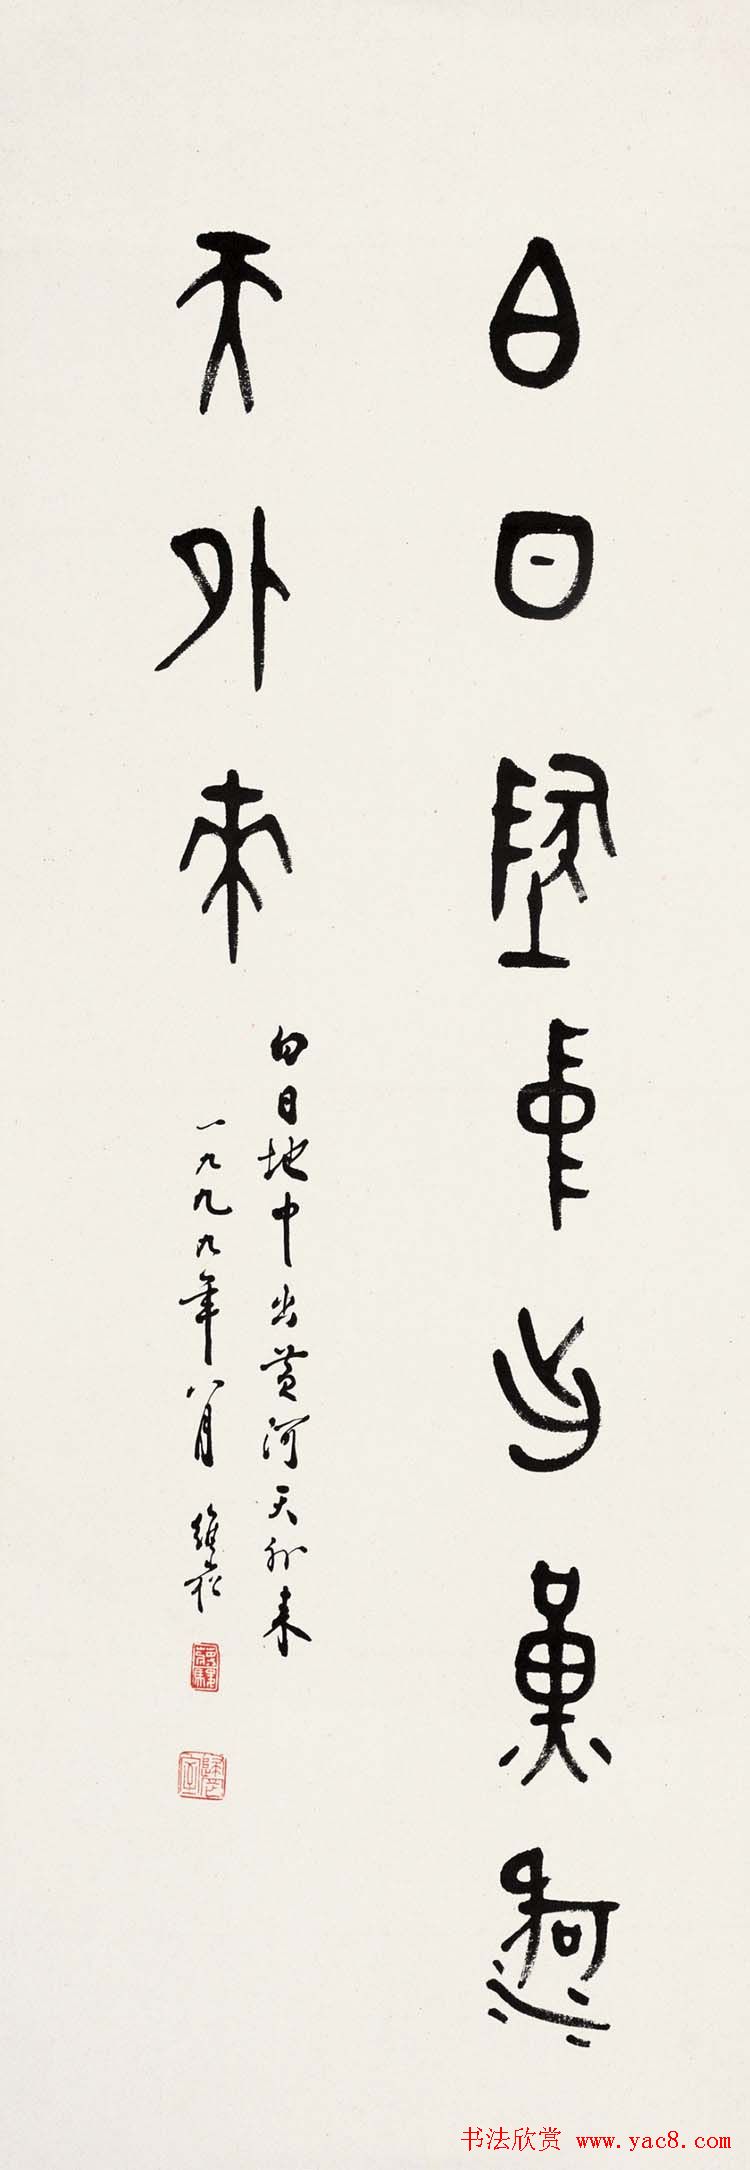 白日地中出黄河
天外来
白日地中出黄河天外来
一九九九年八月 维崧
书法欣赏 www.yac8.com